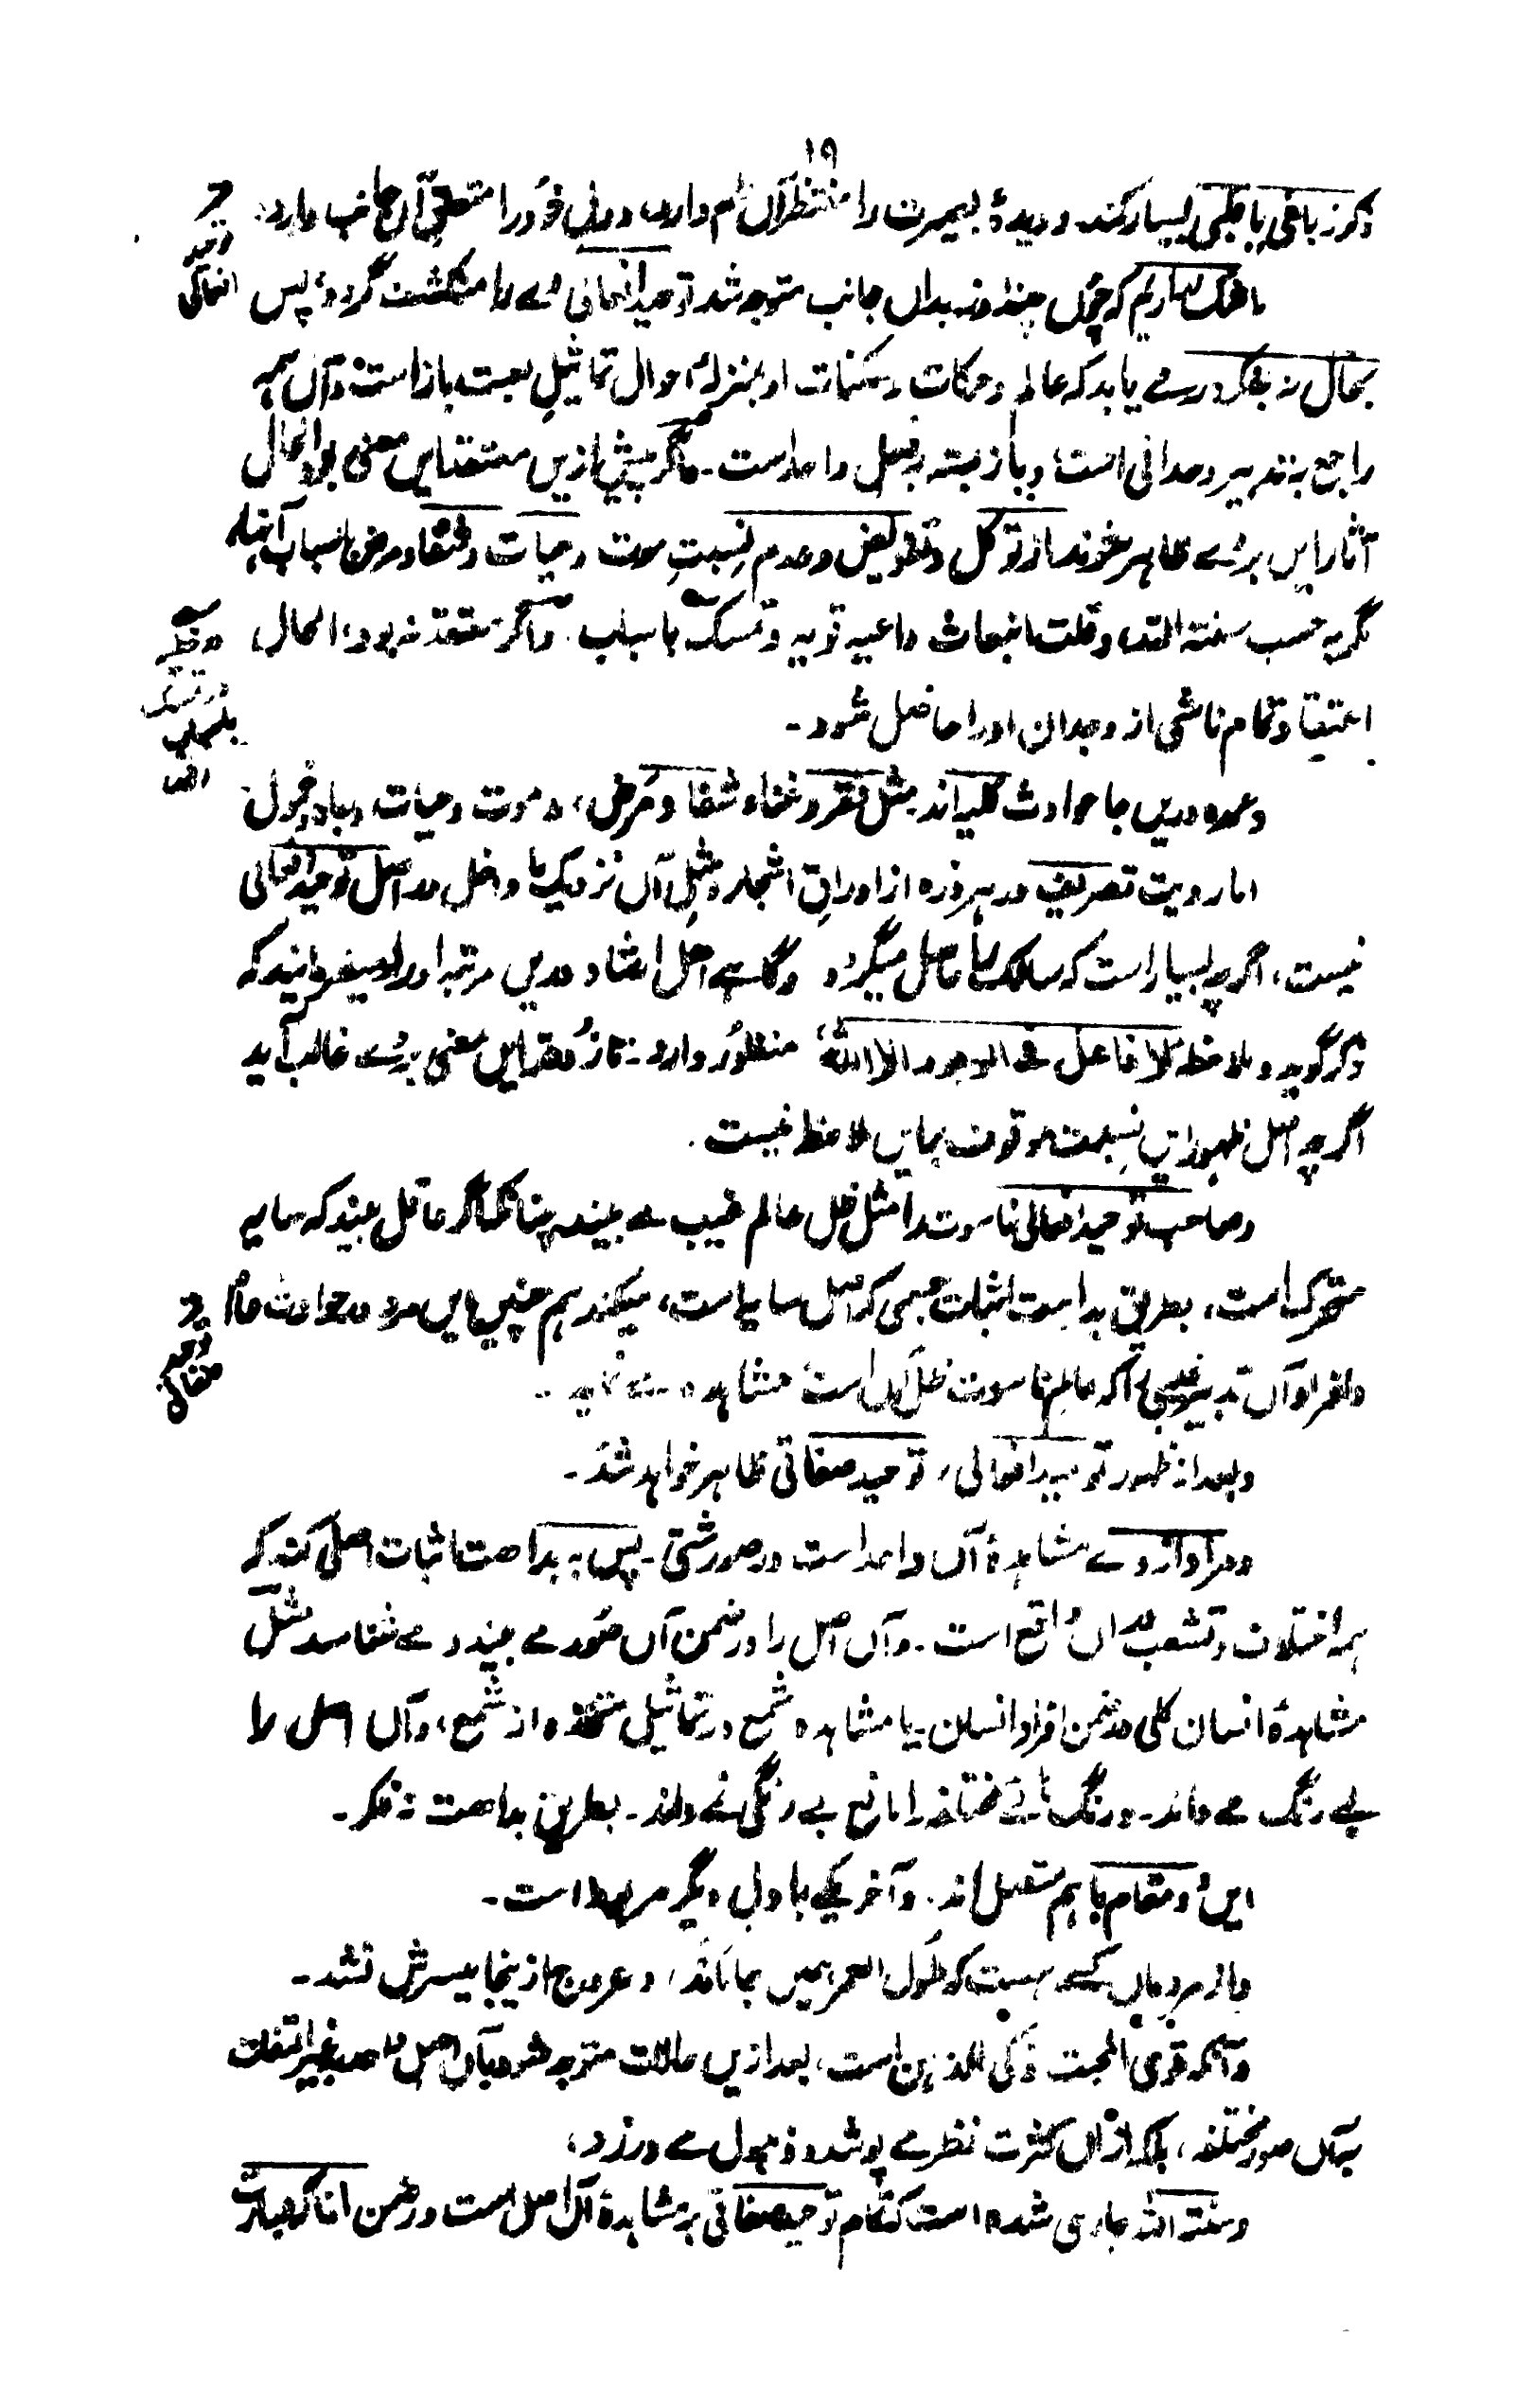 ۱۹
ذکر زبانی یا قلبی بسیار کند و دیدۂ بصیرت را منتظر آں دارد و دل خود را متعلق آں جانب دارد،
ما ضمانت داریم کہ چوں چند روز بداں جانب متوجہ شد توحید افعالی وے را منکشف گردد، پس
بحال نہ بفکر در مے یابد کہ عالم و حرکات و سکنات او بمنزلہ احوال تماثیل لعبت باز است و آں ہمہ
راجع بہ تدبیر وحدانی است، و باز بستہ بفعل واحد است۔ و اگر پیش ازیں معتقد ایں معنی بود الحال
آثار ایں بر وے ظاہر خوند از توکل و تفویض و عدم نسبتِ موت و حیات و شفا و مرض باسباب آنہا،
مگر بہ حسب سنۃ اللہ، و قلت انبعاث داعیہ قویہ و تمسک باسباب۔ و اگر معتقد نہ بود، الحال
اعتقاد تمام ناشی از وجدان او را حاصل شود۔
و عمدہ دریں جا حوادث کلیہ اند مثل فقر و غناء و شفا و مرض، و موت و حیات، و جاہ و خمول
اما رویت تصریف در ہر ذرہ از اوراقِ اشجار و مثلِ آں نزدیک ما داخل در اصل توحید افعالی
نیست، اگرچہ بسیار است کہ سالک را حاصل میگردد و گاہے اہل ارشاد دریں مرتبہ او را میفرمایند کہ
ذکر گوید و ملاحظہ لا فاعل فی الوجود الا اللہ منظور دارد۔ تا زود تر ایں معنی بر وے غالب آید
اگرچہ اصل ظہور ایں نسبت موقوف بایں ملاحظہ نیست۔
و صاحب توحید افعالی ناسوت را مثل ظل عالم غیب مے بیند، چنانکہ اگر عاقل بیند کہ سایہ
متحرک است، بطریق بداہت اثبات جسمی کہ اصل سایہ است، میکند ہم چنیں ایں مرد در حوادث عالم
و افراد آں تدبیر غیبی را کہ عالم ناسوت ظل آں است مشاہدہ مے نماید۔
و بعد از ظہور توحید افعالی، توحید صفاتی ظاہر خواہد شد۔
و مراد از وے مشاہدۂ آں واحد است در صور شتی۔ پس بہ بداہت اثبات اصلی کند کہ
ہمہ اختلاف و تشعب در آں واقع است۔ و آں اصل را در ضمن آں صور مے بیند و مے شناسد مثل
مشاہدۂ انسان کلی در ضمن افراد انسان۔ یا مشاہدہ شمع در تماثیل متخذہ از شمع، و آں اصل را
بے رنگ مے داند۔ و رنگ ہائے مختلفہ را مانع بے رنگی نے داند۔ بطریق بداہت نہ فکر۔
ایں دو مقام باہم متصل اند۔ و آخر یکے با اول دیگر مربوط است۔
و از مردماں کسے ہست کہ طول العمر ہمیں جا ماند، و عروج ازینجا میسرش نشد۔
و آنکہ قوی المحبت ذکی الذہن است، بعد ازیں حالات متوجہ شود بآں اصل واحد بغیر التفات
بآں صور مختلفہ، بلکہ از آں کثرت نظر مے پوشد و ذہول مے ورزد،
و سنۃ اللہ جاری شدہ است کہ تمام توحید صفاتی بر مشاہدۂ آں اصل است در ضمن انا کہ عبارت
توحید
افعالی
توحید
صفاتی